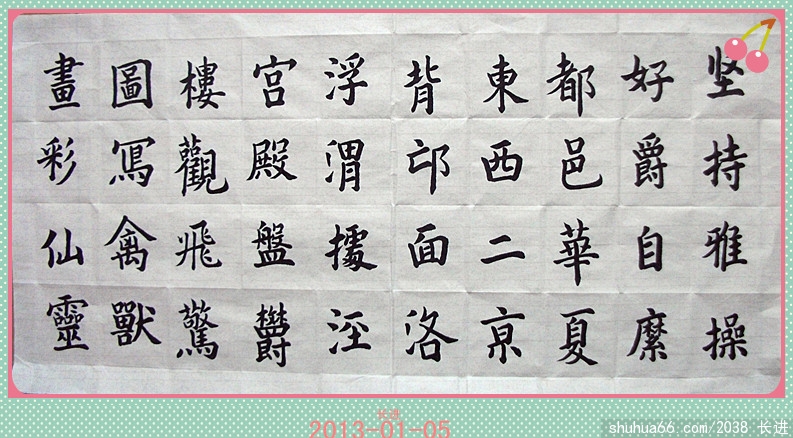 坚持雅操
好爵自縻
都邑華夏
東西二亰
背邙面洛
浮渭據涇
宮殿盤欝
樓觀飛驚
圖冩禽獸
畫彩仙靈
长进
2013-01-05
shuhua66.com/2038 长进